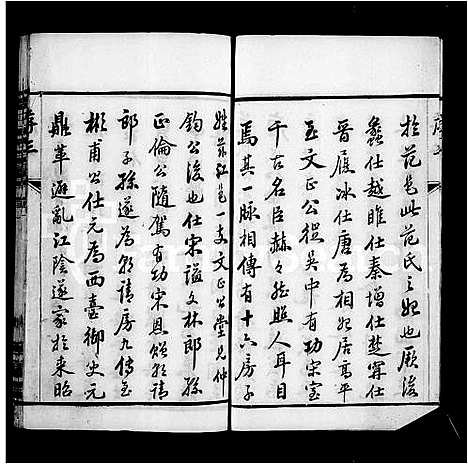 於范邑此范氏之始也厥後
蠡仕越睢仕秦增仕楚寗仕
晉履冰仕唐為相始居高平
至文正公從吳中有功宋室
千古名臣赫々然照人耳目
焉其一脉相傳有十六房子
姓茲江邑一支文正公堂兄仲
鈞公後也仕宋謚文林郎孫
正倫公隨駕有功宋恩贈朝請
郎子孫遂為朝請房九傳至
彬甫公仕元為西臺御史元
鼎革避亂江陰遂家於來昭
序三